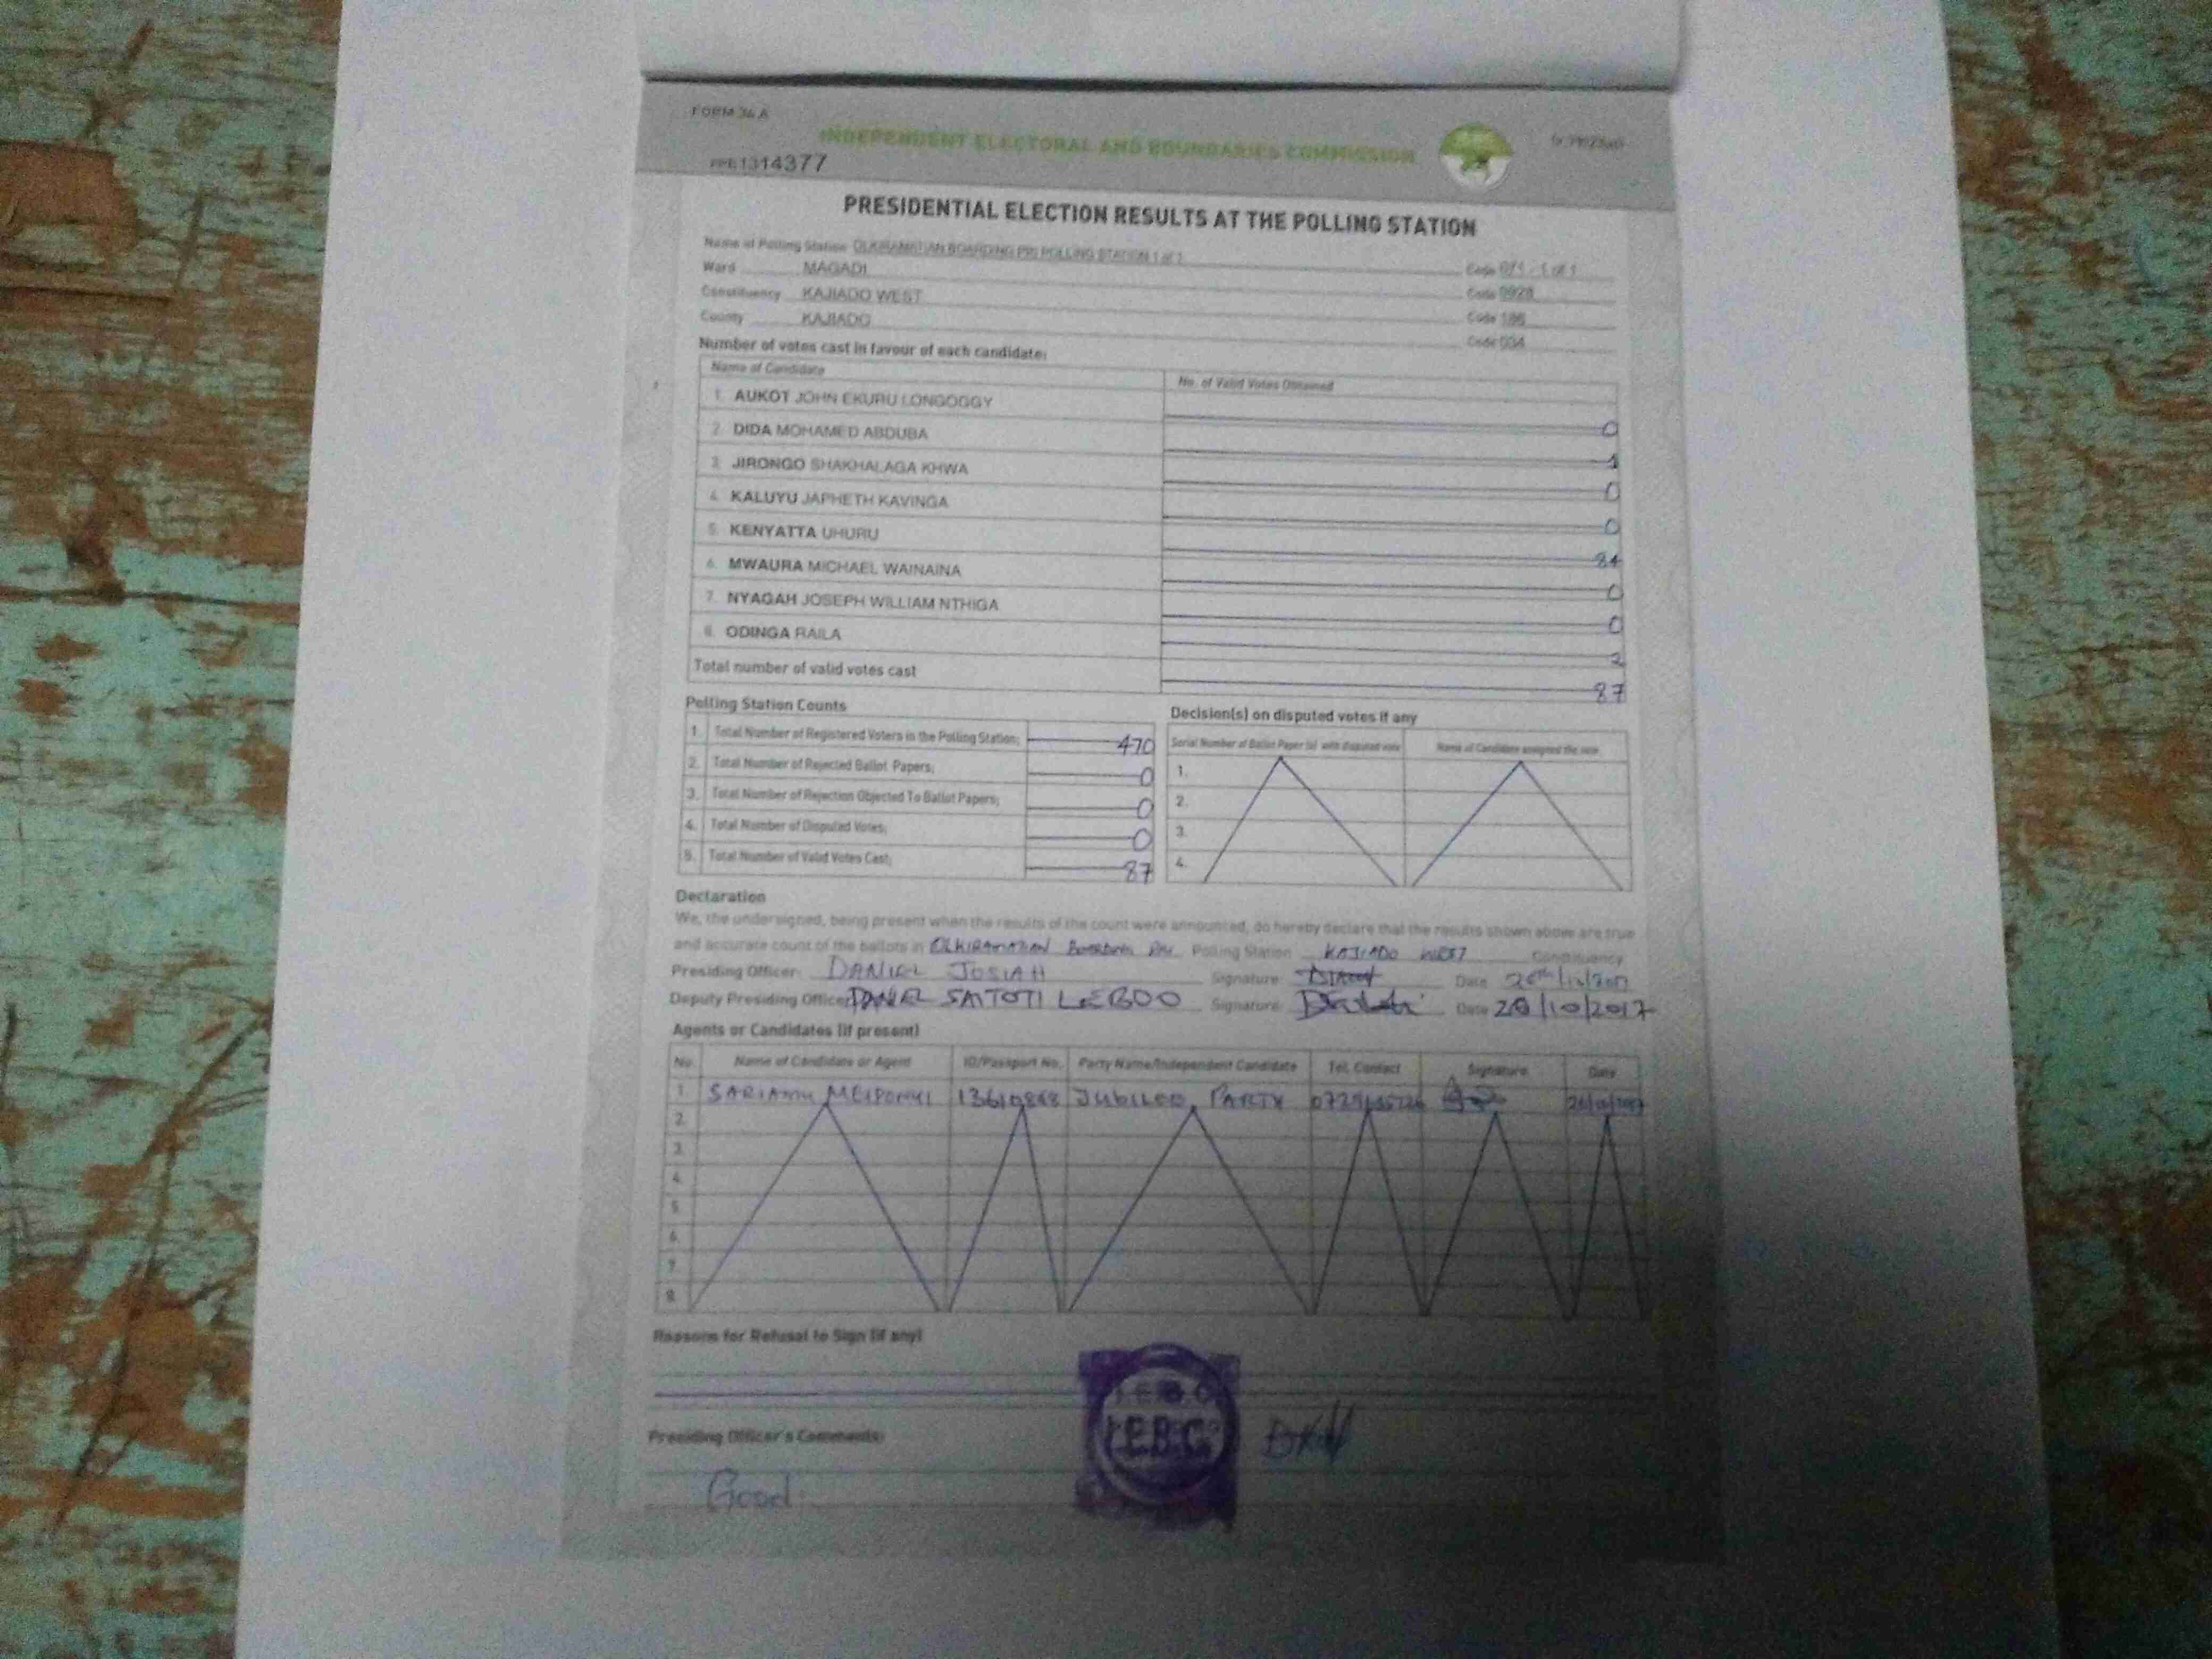 FORM 34 A
INDEPENDENT ELECTORAL AND BOUNDARIES COMMISSION
1314377
PRESIDENTIAL ELECTION RESULTS AT THE POLLING STATION
Name of Polling Station OLKIRAMATIAN BOARDING PRI POLLING STATION 1 of 1
Ward MAGADI Code 0928
Constituency KAJIADO WEST Code 186
County KAJIADO Code 034
Number of votes cast in favour of each candidate:
Name of Candidate No. of Valid Votes Obtained
1. AUKOT JOHN EKURU LONGOGGY 0
2. DIDA MOHAMED ABDUBA 1
3. JIRONGO SHAKHALAGA KHWA 0
4. KALUYU JAPHETH KAVINGA 0
5. KENYATTA UHURU 84
6. MWAURA MICHAEL WAINAINA 0
7. NYAGAH JOSEPH WILLIAM NTHIGA 0
8. ODINGA RAILA 2
Total number of valid votes cast 87
Polling Station Counts
1. Total Number of Registered Voters in the Polling Station; 470
2. Total Number of Rejected Ballot Papers; 0
3. Total Number of Rejection Objected To Ballot Papers; 0
4. Total Number of Disputed Votes; 0
5. Total Number of Valid Votes Cast; 87
Decision(s) on disputed votes if any
Serial Number of Ballot Paper (s) with disputed vote Name of Candidate assigned the vote
1.
2.
3.
4.
Declaration
We, the undersigned, being present when the results of the count were announced, do hereby declare that the results shown above are true
and accurate count of the ballots in OLKIRAMATIAN BOARDING PRI Polling Station KAJIADO WEST Constituency
Presiding Officer: DANIEL JOSIAH Signature: Date 26th/10/2017
Deputy Presiding Officer DANIEL SAITOTI LEBOO Signature: Date 26/10/2017
Agents or Candidates (if present)
No. Name of Candidate or Agent ID/Passport No. Party Name/Independent Candidate Tel. Contact Signature Date
1. JUBILEE PARTY 26/10/2017
2.
3.
4.
5.
6.
7.
8.
Reasons for Refusal to Sign (if any)
I.E.B.C.
Presiding Officer's Comments:
Good.